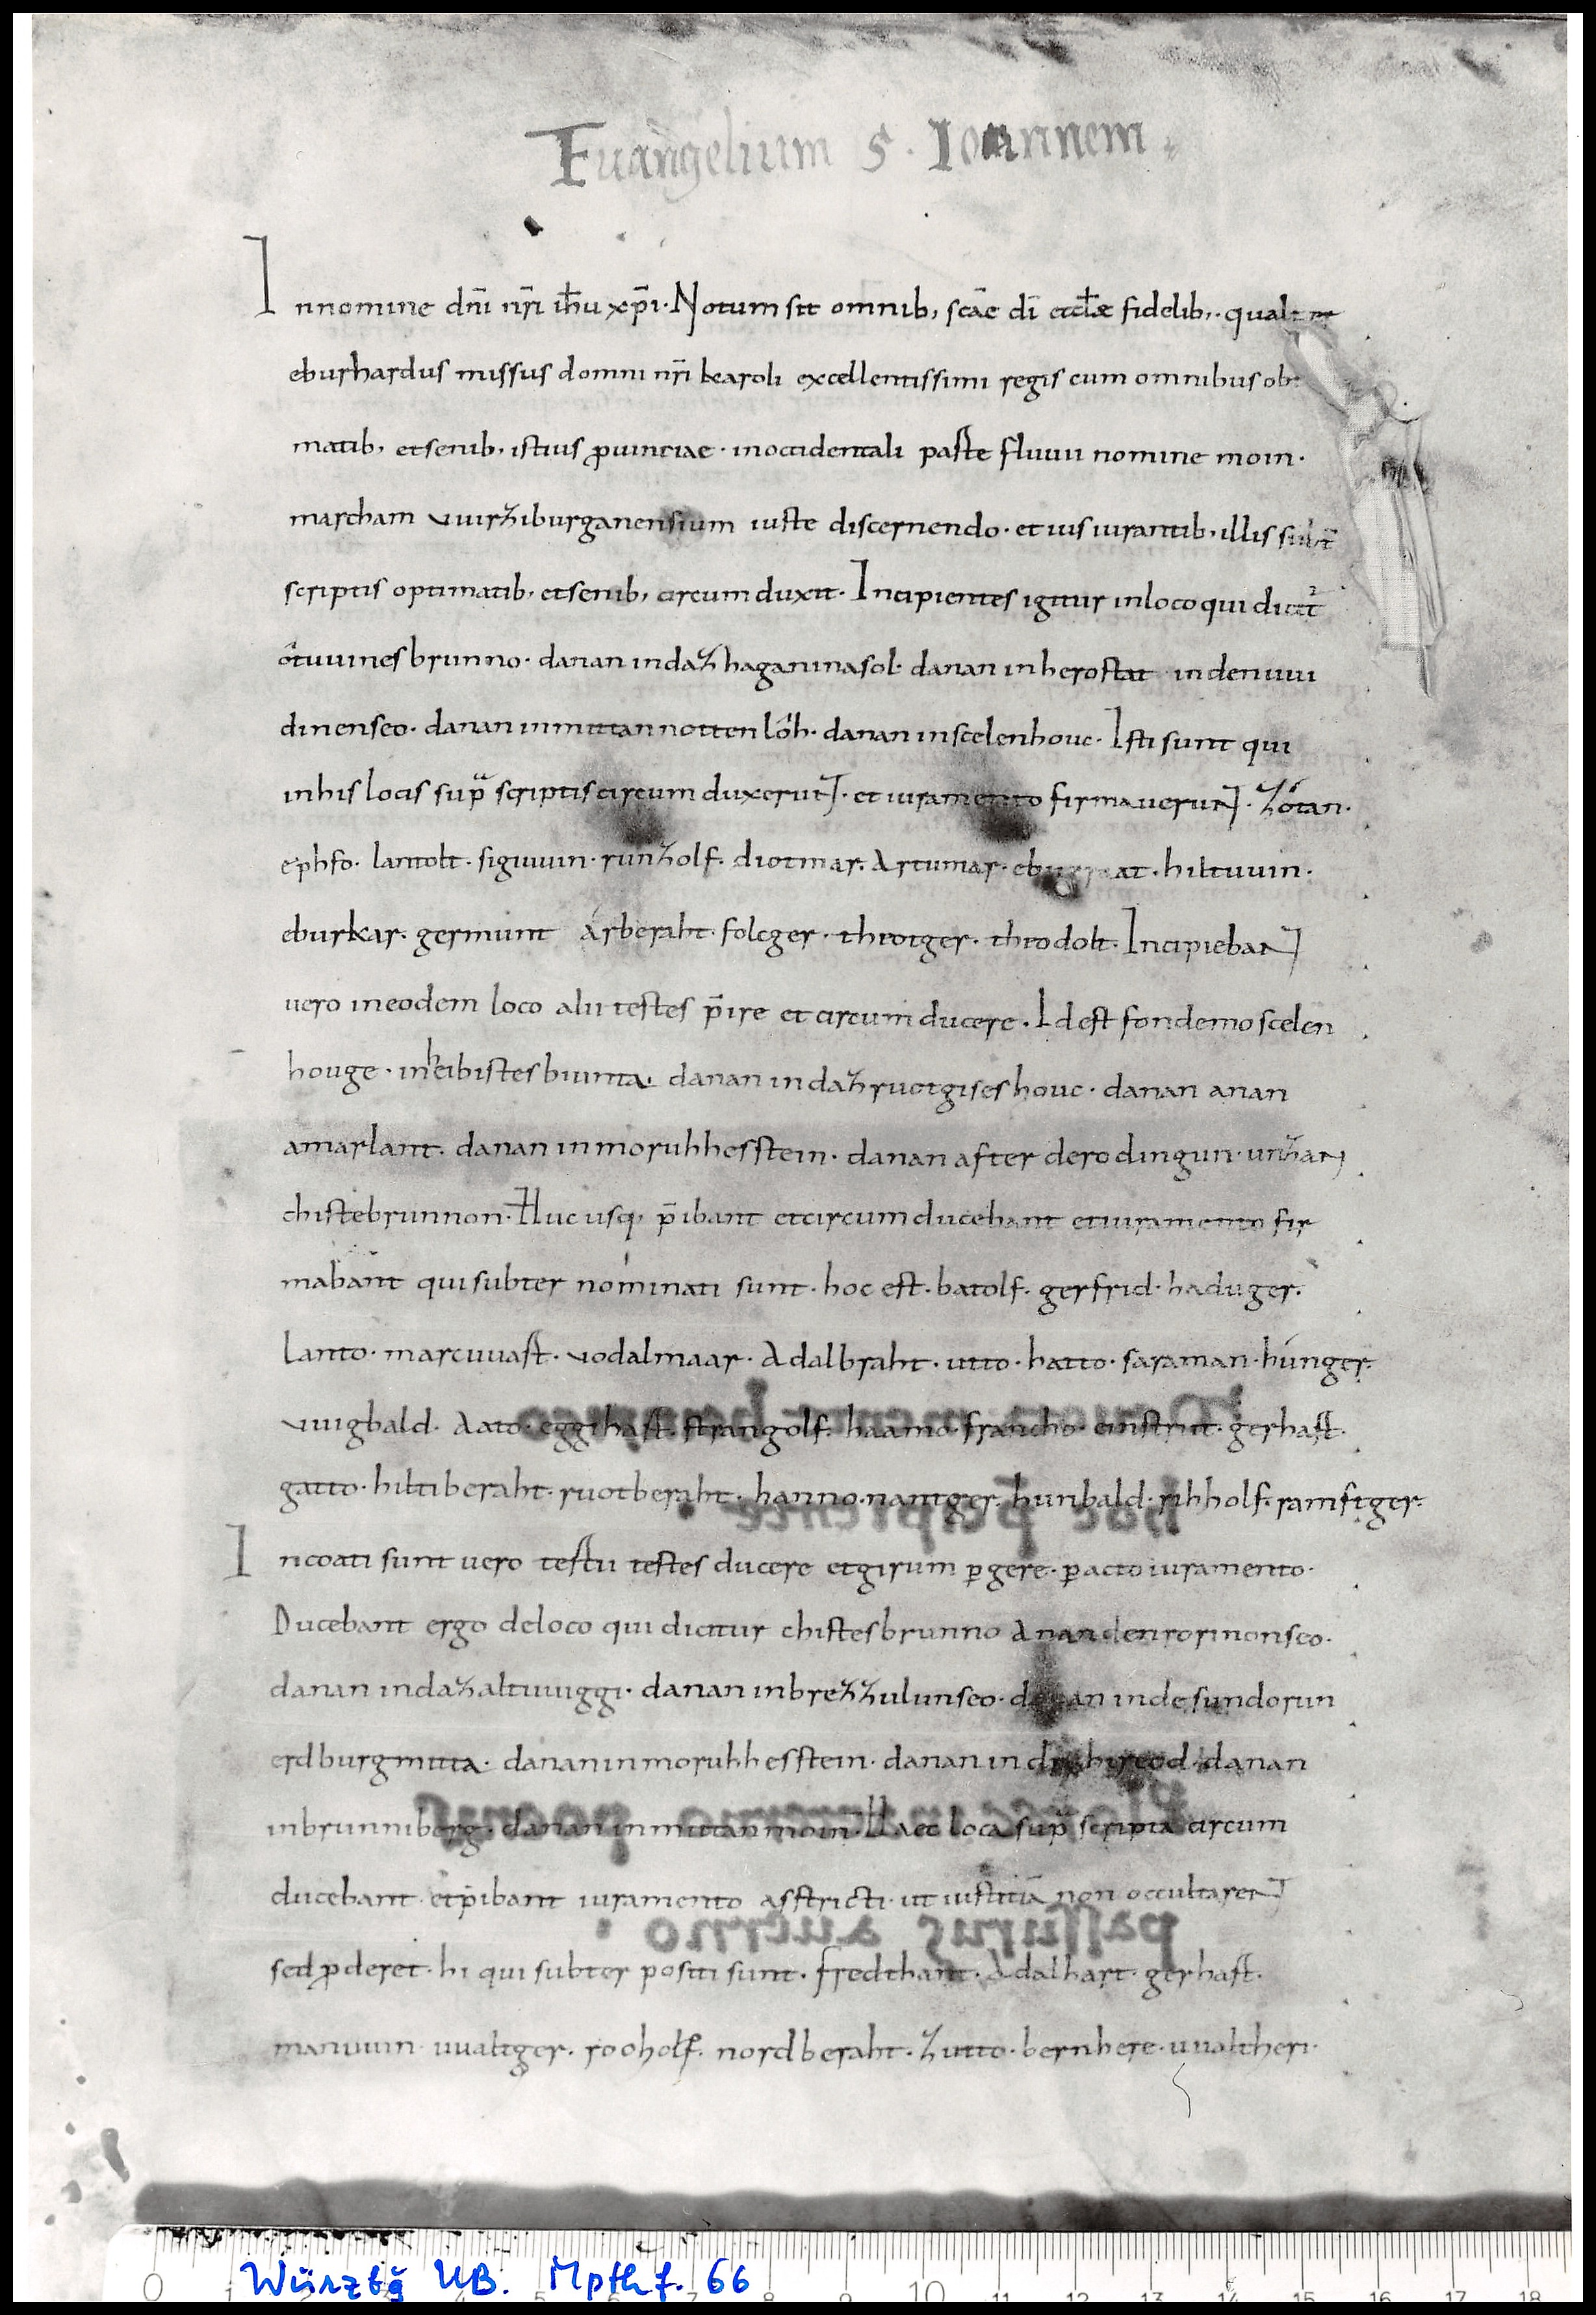 Euangelium S. Ioannem
In nomine dn̄i nr̄i ih̄u xp̄i· Notum sit omnib; scāe dī eccl̄ae fidelib;· qualit
eburhardus missus domni nr̄i karoli excellentissimi regis cum omnibus ob
matib; et senib; istius p̱uinciae· in occidentali parte fluuii nomine moin·
marcham uuirziburganensium iuste discernendo· et ius iurantib; illis subt̄
scriptis optimatib; et senib; circumduxit· Incipientes igitur in loco qui dicit̄
ôtuuinesbrunno· danan in daz haganinasol· danan in herostat in den uui
dinenseo· danan in mittan nottenlôh· danan in scelenhouc· Isti sunt qui
in his locis sup̄ scriptis circumduxerunt· et iuramento firmauerunt· zótan·
ephfo· lantolt· sigiuuin· runzolf· diotmar· Artumar· hiltuuin·
eburkar· germunt Árberaht· folcger· theotger· theodolt· Incipiebant
uero in eodem loco alii testes p̄ire et circumducere· Id est fon demo scelen
houge· in heibistesbiunta· danan in daz ruotgiseshouc· danan anan
amarlant· danan in moruhhesstein· danan after dero dingun· unzan
chistebrunnon· Huc usq; p̄ibant et circumducebant et iuramento fir
mabant qui subter nominati sunt· hoc est· batolf· gerfrid· haduger·
Lanto· marcuuart· uodalmaar· Adalbraht· utto· hatto· saraman· húnger·
uuigbald· Aato· eggihart· strangolf· haamo· francho· einstrit· gerhart·
gatto· hiltiberaht· ruotberaht· hanno· nantger· hunbald· rihholf· ramftger·
Incoati sunt uero tertii testes ducere et girum p̱gere· p̱acto iuramento·
Ducebant ergo de loco qui dicitur chistesbrunno Anan den rorinonseo·
danan in daz altuuiggi· danan in brezzulunseo· danan in de sundorun
erdburgmitta· danan in moruhhesstein· danan in drúhireod· danan
in brunniberg· danan in mittan moin· Haec loca sup̄ scripta circum
ducebant et p̄ibant iuramento asstricti· ut iustitiā non occultarent
sed p̱derent· hi qui subter positi sunt· fredthant· Adalhart· gerhart·
manuuin· uualtger· rooholf· nordberaht· zutto· bernhere· uualtheri·
Würzbg UB. Mpthf. 66
0 1 2 3 4 5 6 7 8 9 10 11 12 13 14 15 16 17 18